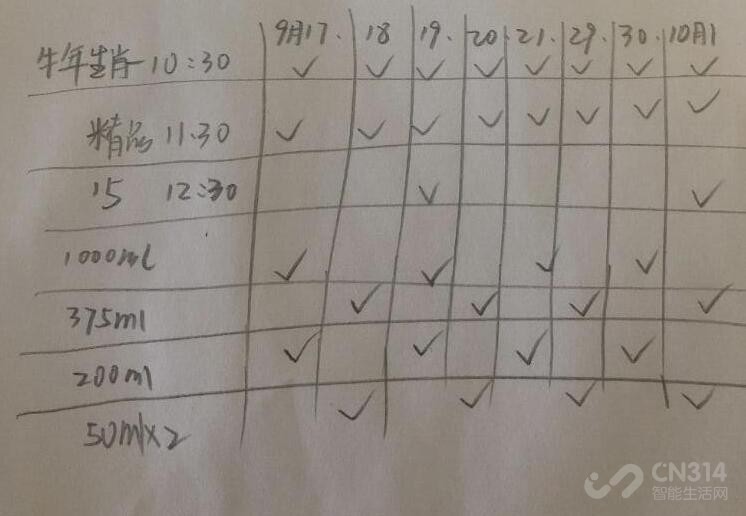 9月17. 18 19. 20 21. 29. 30. 10月1
牛年生肖 10:30 ✓ ✓ ✓ ✓ ✓ ✓ ✓ ✓
精品 11.30 ✓ ✓ ✓ ✓ ✓ ✓ ✓ ✓
15 12:30 ✓ ✓
1000ml ✓ ✓ ✓ ✓
375ml ✓ ✓ ✓ ✓
200ml ✓ ✓ ✓ ✓
50ml×2 ✓ ✓ ✓ ✓
CN314
智能生活网